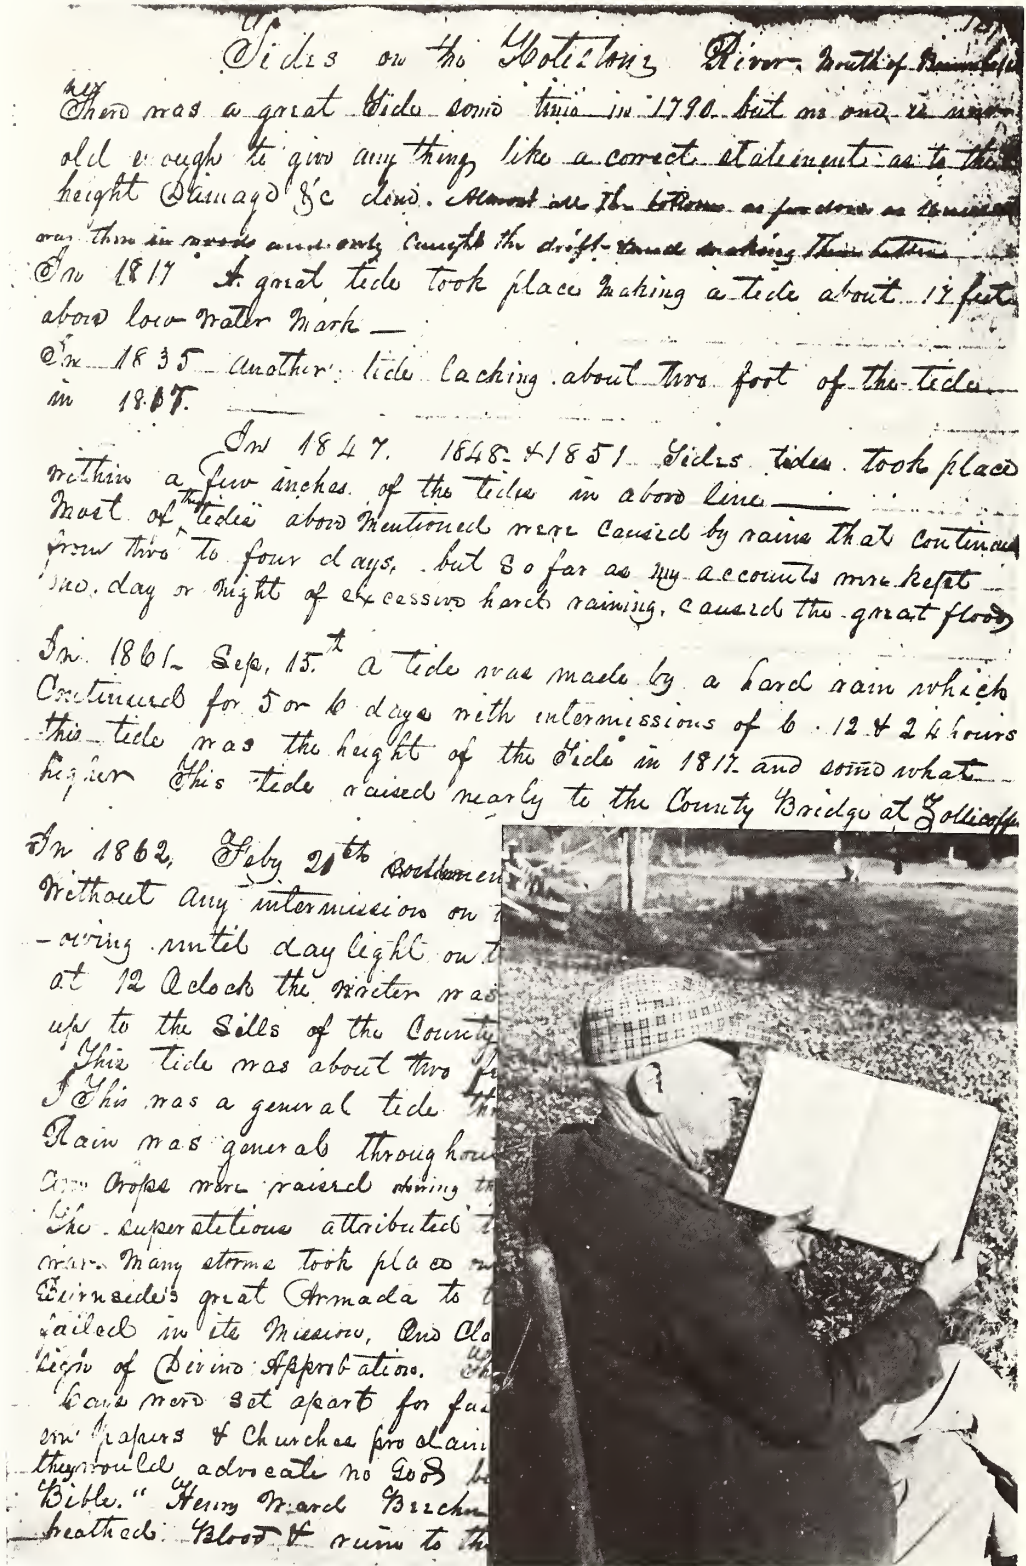 Tides on the Holeslong River. Mouth of
There was a great Tide some time in 1790. but no one is now
old enough to give any thing like a correct statement as to the
height Damage &c done. Almost all the bottoms as far down as
was then in woods and only caught the drift and making them better
In 1817 A great tide took place Making a tide about 17 feet
above low water Mark —
In 1835 another tide laching about two foot of the tide
in 1817.
In 1847. 1848 & 1851 Tides tides took place
within a few inches of the tides in above line —
Most of the tides above Mentioned were caused by rains that continued
from two to four days, but so far as my accounts were kept
one day or night of excessive hard raining, caused the great flood
In 1861 Sep. 15.th A tide was made by a hard rain which
Continued for 5 or 6 days with intermissions of 6. 12 & 24 hours
this tide was the height of the Tide in 1817 and somewhat
higher This tide raised nearly to the County Bridge at Zollicoffe
In 1862, Feby 21th
Without any intermission on
-owing until day light on t
at 12 Oclock the writer was
up to the Sills of the County
This tide was about two fe
This was a general tide th
Rain was general throughou
Crops were raised during th
the superstitious attributed t
war. Many storms took place on
Burnside's great Armada to t
failed in its Mission, And Cla
sign of Divine Approbation.
Days were set apart for fas
ern papers & Churches proclaim
they would advocate no God b
Bible." Henry Ward Beecher
breathed Blood & ruin to the